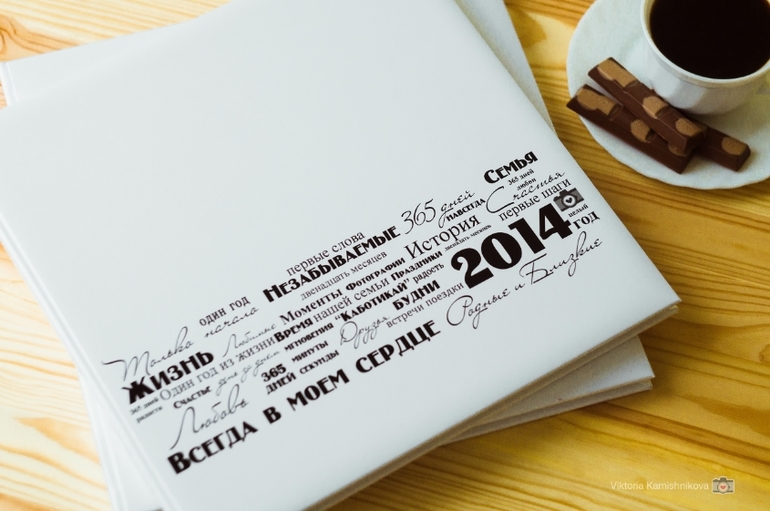 Семья
365 дней
365 дней любви
навсегда
Счастья
первые слова
Незабываемые
История
первые шаги
двенадцать месяцев
2014
целый
год
один год
Моменты Фотографии Праздники
Только начало
Любимые
Время нашей семьи радость
Жизнь
мгновения "Каботикай" Будни
Один год из жизни
Друзья
встречи поездки
Родные и Близкие
Счастье день за днем
365 минуты
дней секунды
365 дней радости
Любовь
Всегда в моем сердце
Viktoria Kamishnikova